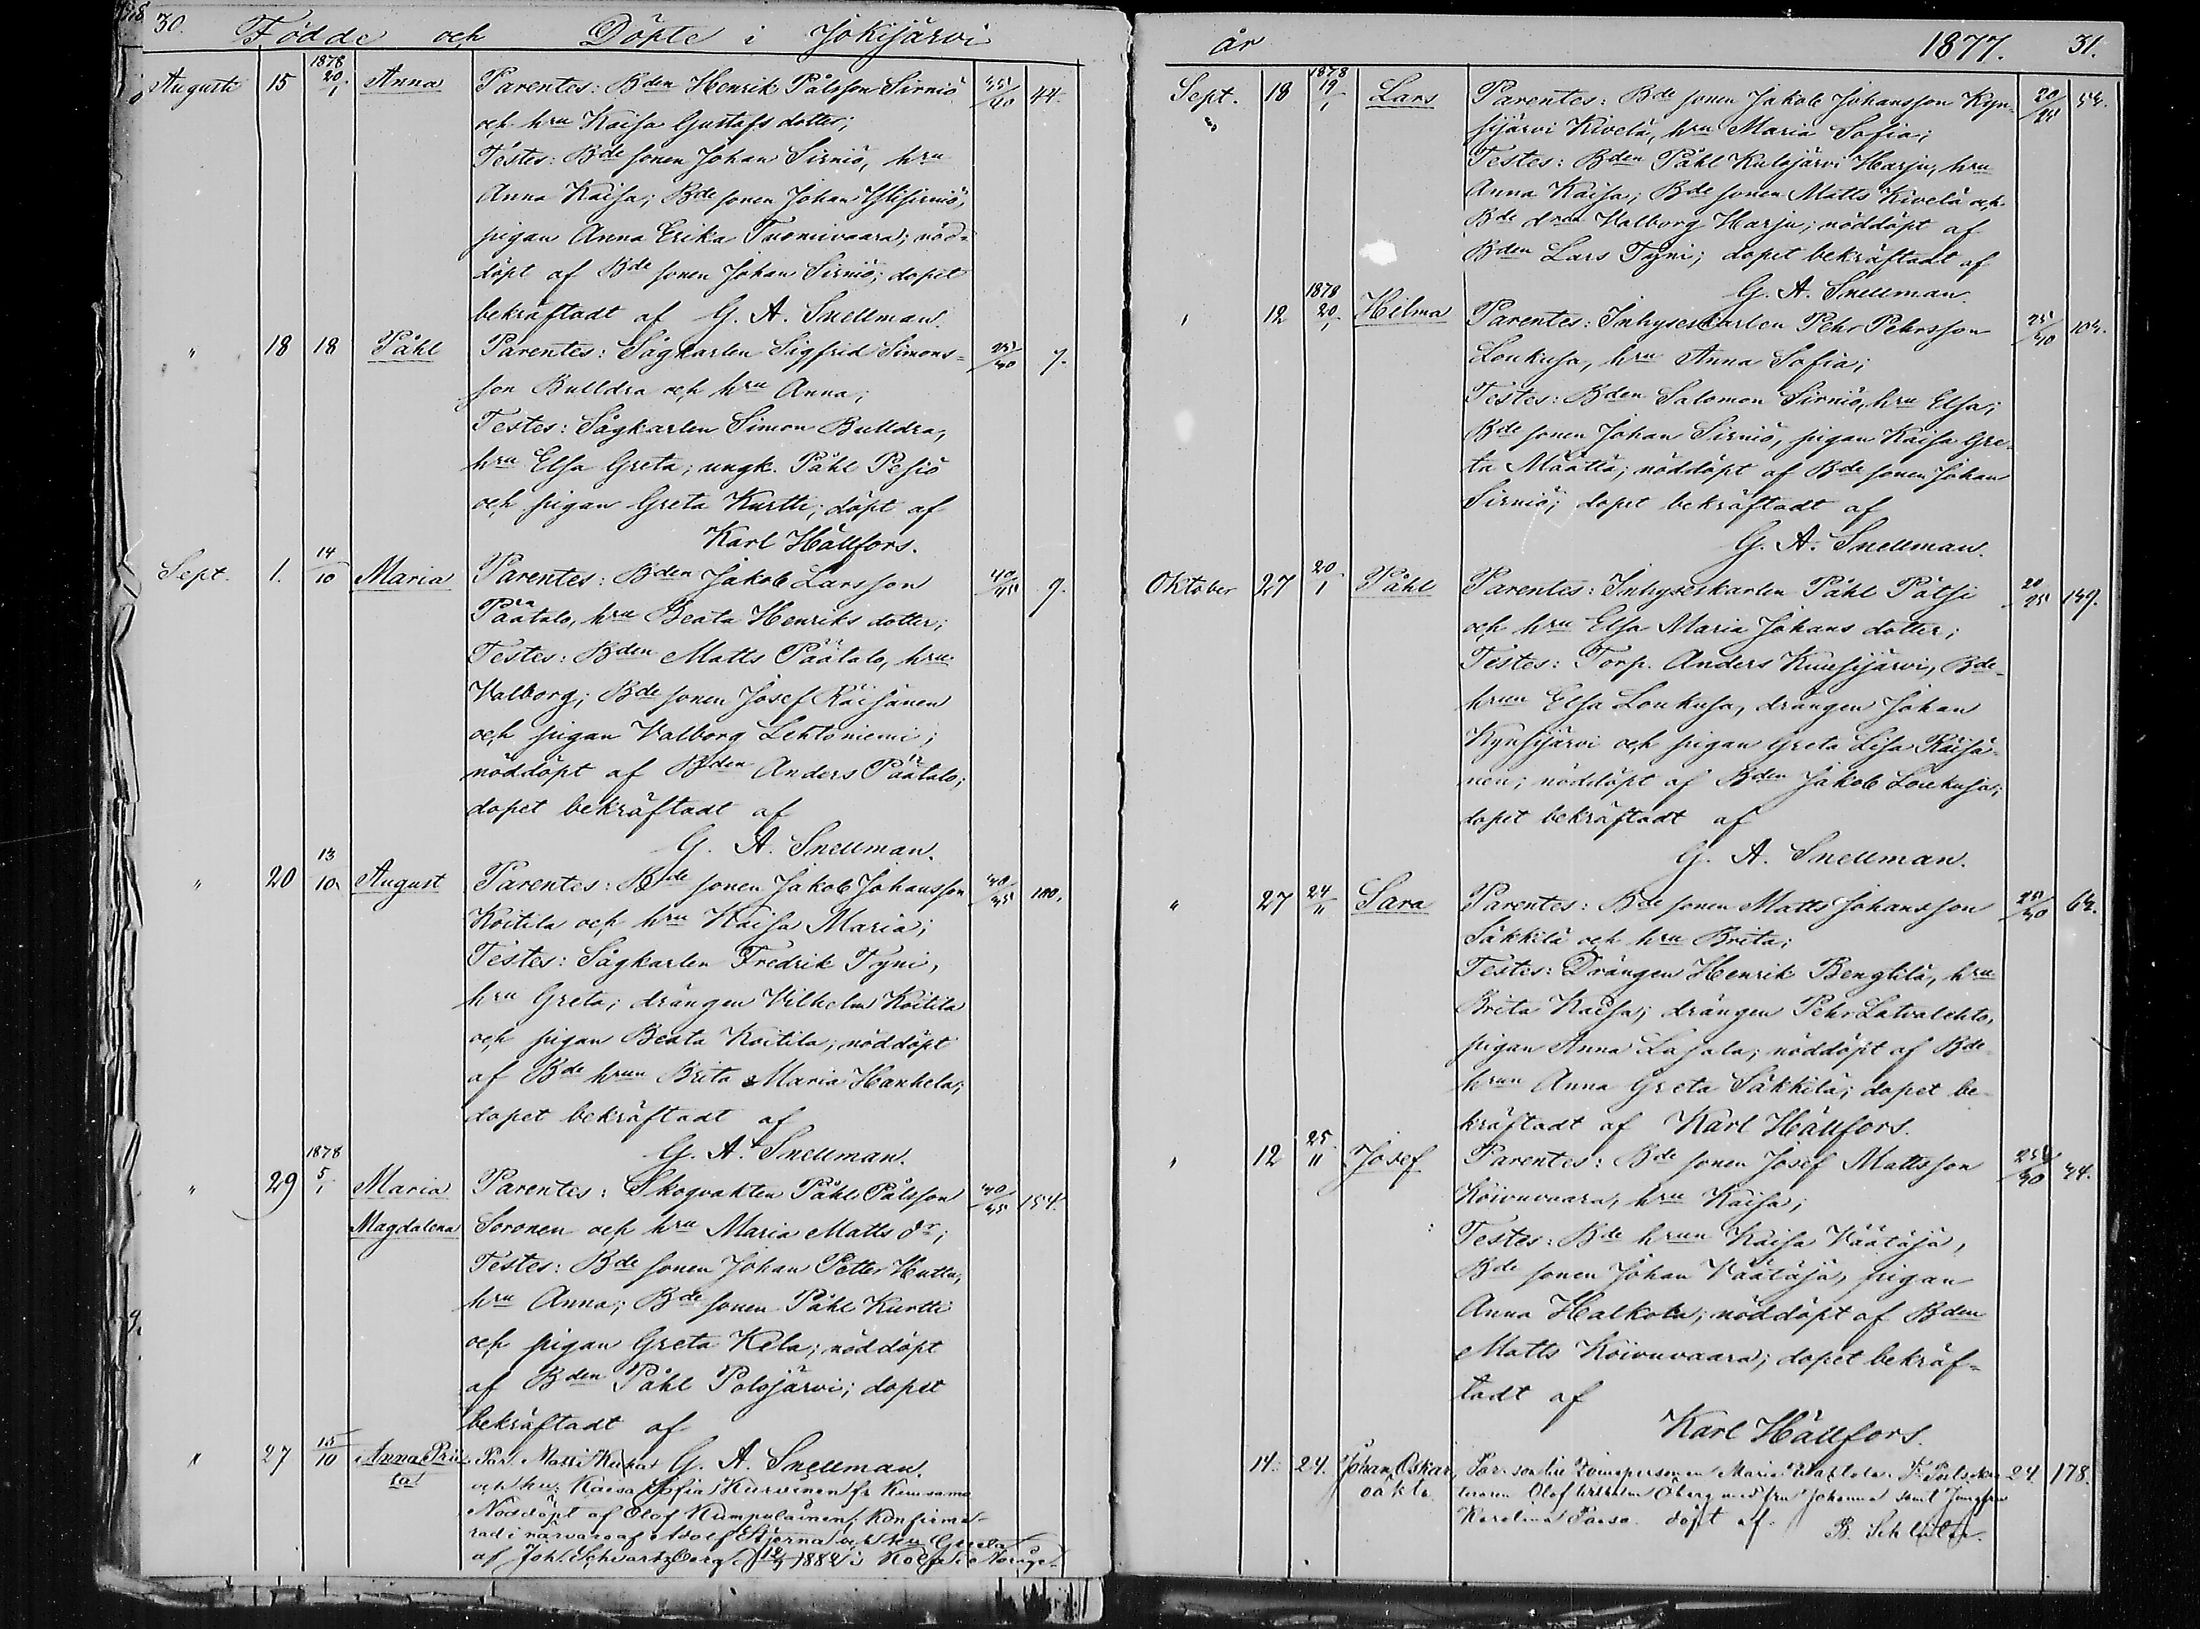 30. Födde och Döpte i Jokijärvi
Augusti 15 1878 20/1 Anna Parentes: Bden Henrik Pålsson Sirniö 35/40 44.
och hru Kaisa Gustafs dotter;
Testes: Bde sonen Johan Sirniö, hru
Anna Kaisa; Bde sonen Johan Ylisirniö,
pigan Anna Erika Tuomivaara; nöd-
döpt af Bde sonen Johan Sirniö; dopet
bekräftadt af G. A. Snellman.
" 18 18 Påhl Parentes: Sågkarlen Sigfrid Simons-
son Bulldra och hru Anna;
Testes: Sågkarlen Simon Bulldra,
hru Elsa Greta; ungk. Påhl Pesiö
och pigan Greta Kurtti; döpt af
Karl Hällfors.
Sept. 1. 14/10 Maria Parentes: Bden Jakob Larsson 40/45 9.
Päätalo, hru Beata Henriks dotter;
Testes: Bden Matts Päätalo, hru
Valborg; Bde sonen Josef Räisänen
och pigan Valborg Lehtoniemi;
nöddöpt af Bden Anders Päätalo;
dopet bekräftadt af
G. A. Snellman.
" 20 13/10 August Parentes: Bde sonen Jakob Johansson 30/35 100.
Koitila och hru Kaisa Maria;
Testes: Sågkarlen Fredrik Tyni,
hru Greta; drängen Vilhelm Koitila
och pigan Beata Koitila; nöddöpt
af Bde hrun Brita Maria Hanhela;
dopet bekräftadt af
G. A. Snellman.
" 29 1878 5/1 Maria Parentes: Skogvakten Påhl Pålsson 30/35 154.
Magdalena Soronen och hru Maria Matts dr;
Testes: Bde sonen Johan Petter Hutta,
hru Anna; Bde sonen Påhl Kurtti
och pigan Greta Kela; nöddöpt
af Bden Påhl Polojärvi; dopet
bekräftadt af
G. A. Snellman.
" 27 15/10 Anna Pri- Par. Matti
ta och hu: Kaisa Sofia Kurvinen fr Kuusamo
Nöddöpt af Olof Kumpulainen; Konfirme-
rad i närvaro af Adolf Stjerna och hu Greeta
af Joh. Schvartzberg 1882 i
år 1877. 31.
Sept. 18 1878 19/1 Lars Parentes: Bde sonen Jakob Johansson Kyn- 20/25 54.
sijärvi Kivelä, hru Maria Sofia;
Testes: Bden Påhl Kulojärvi Harju, hru
Anna Kaisa; Bde sonen Matts Kivelä och
Bde dren Valborg Harju; nöddöpt af
Bden Lars Tyni; dopet bekräftadt af
G. A. Snellman.
12 1878 20/1 Hilma Parentes: Inhyseskarlen Pehr Pehrsson
Loukusa, hru Anna Sofia;
Testes: Bden Salomon Sirniö, hru Elsa;
Bde sonen Johan Sirniö, pigan Kaisa Gre-
ta Määttä; nöddöpt af Bde sonen Johan
Sirniö; dopet bekräftadt af
G. A. Snellman.
Oktober 27 20/1 Påhl Parentes: Inhyseskarlen Påhl Pätsi 20/25 149.
och hru Elsa Maria Johans dotter;
Testes: Torp. Anders Kuusijärvi, Bde-
hrun Elsa Loukusa, drängen Johan
Kynsijärvi och pigan Greta Lisa Räisä-
nen; nöddöpt af Bden Jakob Loukusa;
dopet bekräftadt af
G. A. Snellman.
" 27 24/11 Sara Parentes: Bde sonen Matts Johansson
Säkkilä och hru Brita;
Testes: Drängen Henrik Bengtilä, hru
Brita Kaisa; drängen Pehr Latvalehto,
pigan Anna Lasala; nöddöpt af Bde-
hrun Anna Greta Säkkilä; dopet be-
kräftadt af Karl Hällfors.
" 12 25/11 Josef Parentes: Bde sonen Josef Mattsson
Koivuvaara, hru Kaisa;
Testes: Bde hrun Kaisa Väätäjä,
Bde sonen Johan Väätäjä, pigan
Anna Halkola; nöddöpt af Bden
Matts Koivuvaara; dopet bekräf-
tadt af
Karl Hällfors.
14. 24. Johan Oskar, 24. 178.
oäkta Olof Wilhelm Öberg med fru Johanna samt Jungfru
Karolina döpt af